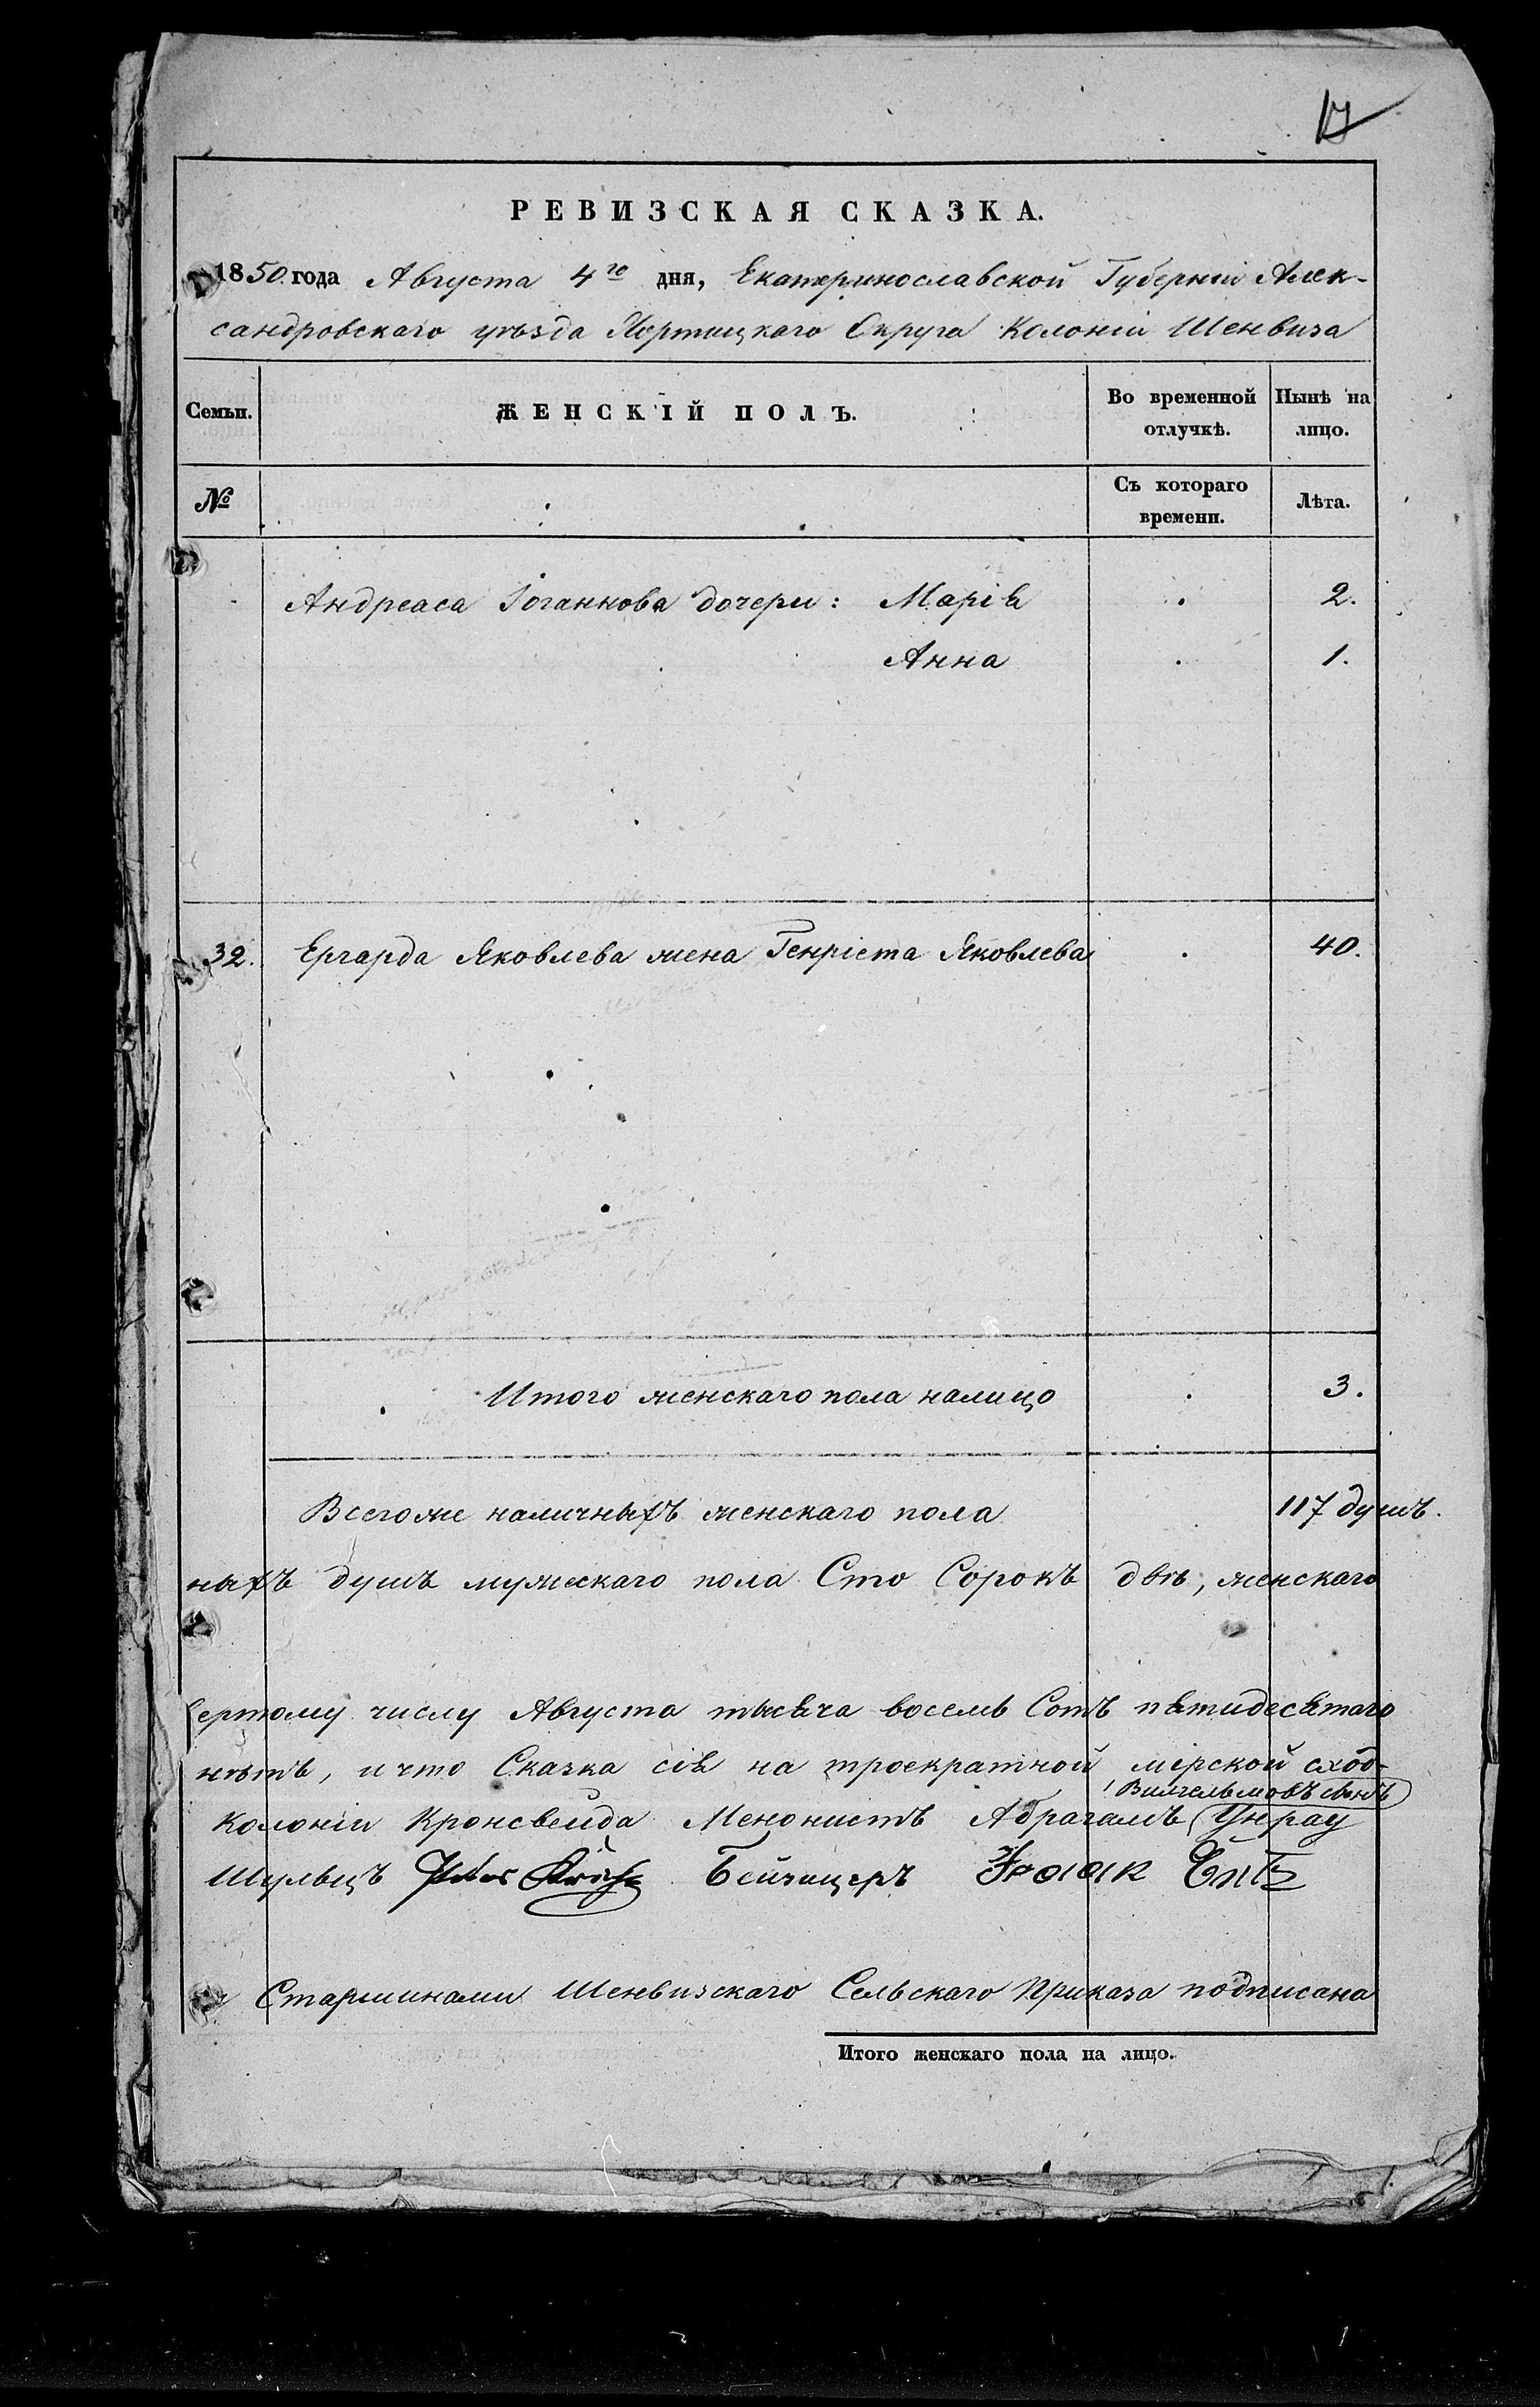 17
РЕВИЗСКАЯ СКАЗКА.
1850. года Августа 4го дня, Екатеринославской Губерніи Алек-
сандровскаго уѣзда Хортицкаго Округа Колоніи Шенвиза
Семьи. ЖЕНСКІЙ ПОЛЪ. Во временной отлучкѣ. Нынѣ на лицо.
№ Съ котораго времени. Лѣта.
Андреаса Іоганнова дочери: Марія 2.
Анна 1.
32. Ергарда Яковлева жена Генріета Яковлева 40.
Итого женскаго пола налицо 3.
Всегоже наличныхъ женскаго пола 117 душъ.
ныхъ душъ мужескаго пола Сто Сорокъ двѣ, женскаго
ертому числу Августа тысяча восемь Сотъ пятидесятаго
нѣтъ, и что Сказка сія на троекратной мірской сход-
Вильгельмовъ сынъ
Колоніи Кронсвейда Менонистъ Абрагамъ Унрау
Шульцъ Бейзицеръ
Старшинами Шенвизскаго Сельскаго Приказа подписана
Итого женскаго пола на лицо.